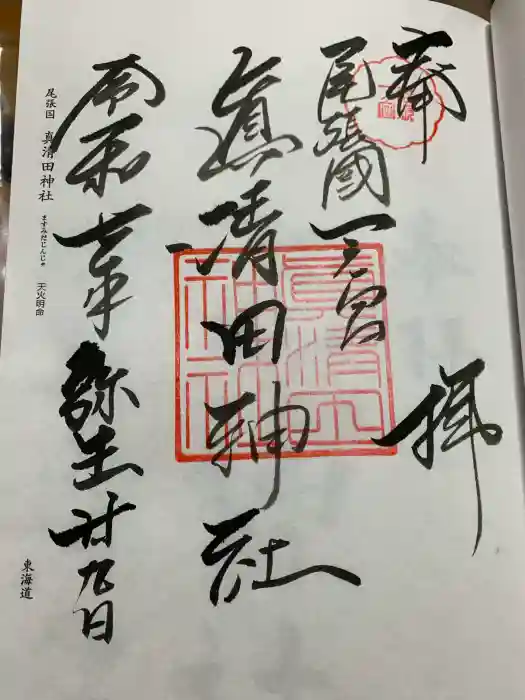 奉拝
尾張國一之宮
眞清田神社
令和七年弥生廿九日
尾張国 真清田神社 ますみだじんじゃ 天火明命
東海道
眞清田神社